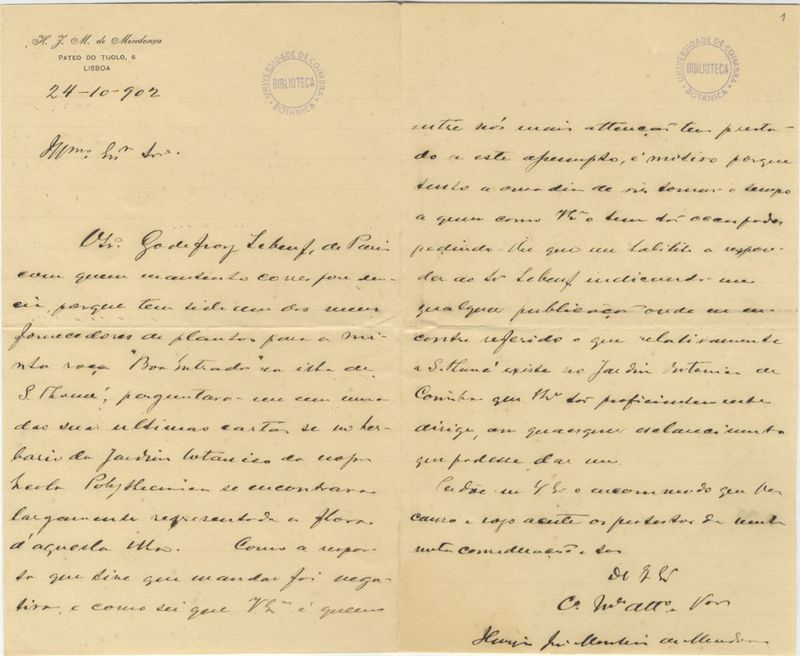 H. J. M. de Mendonça
PATEO DO TIJOLO, 6
LISBOA
24-10-902
UNIVERSIDADE DE COIMBRA
BIBLIOTECA
BOTANICA
Illmo. Exmo. Snr.
O Sr. Godefroy Lebeuf, de Paris
com quem mantenho corresponden-
cia, porque tem sido um dos meus
fornecedores de plantas para a mi-
nha roça "Boa Entrada" na ilha de
S. Thomé, perguntava-me em uma
das suas ultimas cartas se no her-
bario do Jardim botanico da nossa
Escola Polythecnica se encontrava
largamente representada a flora
d'aquella Ilha. Como a respos-
ta que tive que mandar foi nega-
tiva, e como sei que VEx é quem
1
UNIVERSIDADE DE COIMBRA
BIBLIOTECA
BOTANICA
entre nós mais attenção tem presta-
do a este assumpto, é motivo porque
tento a ousadia de vir tomar o tempo
a quem como VEx o tem tão occupado
pedindo-lhe que me habilite a respon-
der ao Sr Lebeuf indicando-me
qualquer publicação onde se en-
contre referido o que relativamente
a S. Thomé existe no Jardim Botanico de
Coimbra que VEx tão proficientemente
dirige, ou quaesquer esclarecimentos
que podesse dar-me.
Perdôe-me VEx o incommodo que lhe
causo e rogo aceite os protestos da muita
consideração
De VEx
Henrique José Monteiro de Mendonça